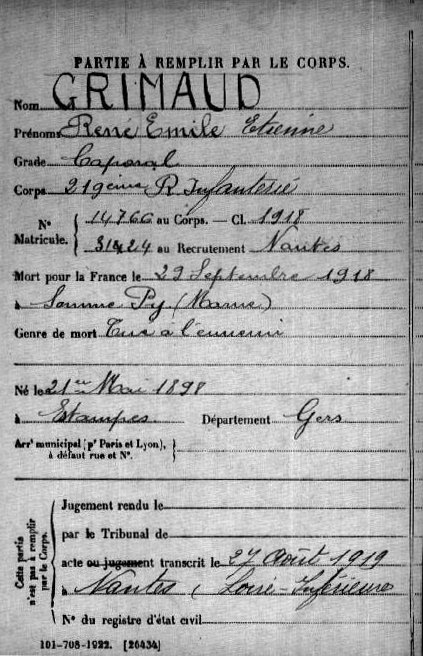 PARTIE À REMPLIR PAR LE CORPS.
Nom GRIMAUD
Prénoms René Emile Etienne
Grade Caporal
Corps 219ème R Infanterie
N° Matricule. { 14766 au Corps. — Cl. 1918
31424 au Recrutement Nantes
Mort pour la France le 29 Septembre 1918
à Somme Py (Marne)
Genre de mort Tué à l'ennemi
Né le 21 Mai 1898
à Estampes Département Gers
Arrt municipal (pr Paris et Lyon), à défaut rue et N°. }
Cette partie n'est pas à remplir par le Corps.
Jugement rendu le
par le Tribunal de
acte ou jugement transcrit le 27 Août 1919
à Nantes (Loire-Inférieure
N° du registre d'état civil
101-708-1922. [26434]